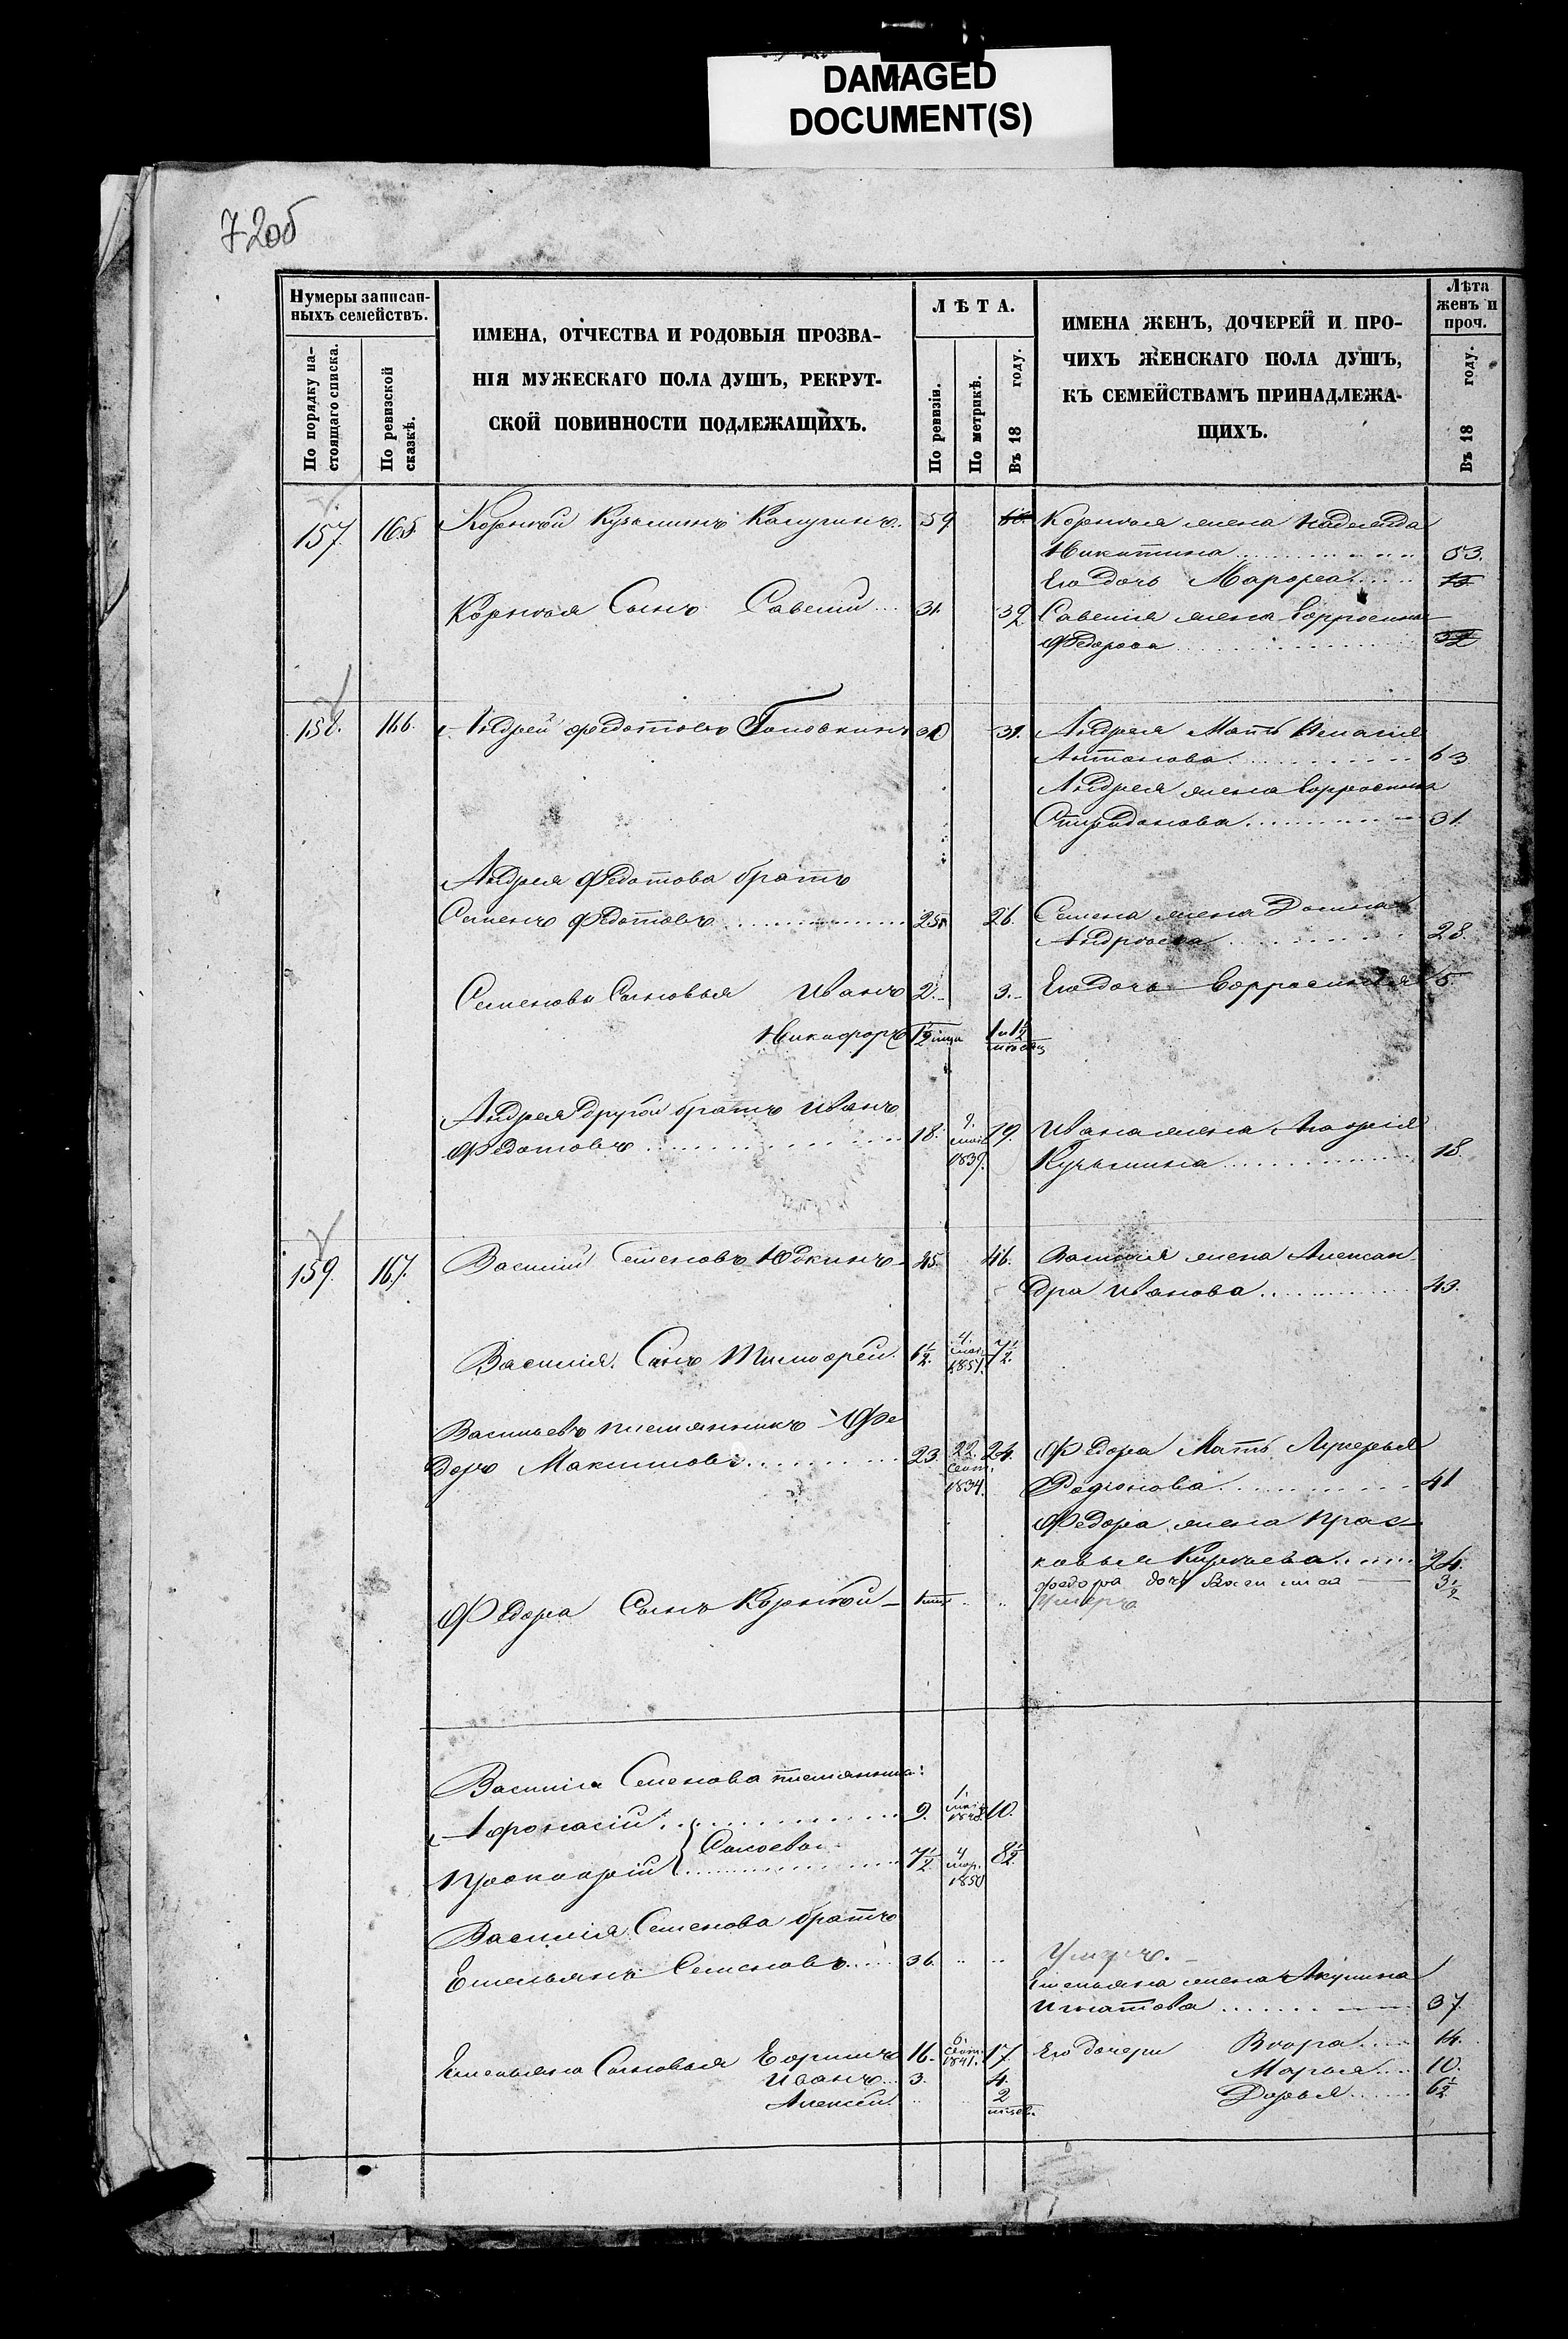 DAMAGED
DOCUMENT(S)
72об
Нумеры записан-
ныхъ семействъ.
По порядку на-
стоящаго списка.
По ревизской
сказкѣ.
ИМЕНА, ОТЧЕСТВА И РОДОВЫЯ ПРОЗВА-
НІЯ МУЖЕСКАГО ПОЛА ДУШЪ, РЕКРУТ-
СКОЙ ПОВИННОСТИ ПОДЛЕЖАЩИХЪ.
ЛѢТА.
По ревизіи.
По метрикѣ.
Въ 18 году.
ИМЕНА ЖЕНЪ, ДОЧЕРЕЙ И ПРО-
ЧИХЪ ЖЕНСКАГО ПОЛА ДУШЪ,
КЪ СЕМЕЙСТВАМЪ ПРИНАДЛЕЖА-
ЩИХЪ.
Лѣта
женъ и
проч.
Въ 18 году.
157. 165. Корнѣй Кузьминъ Калугинъ. 59 60. Корнѣя жена Надежда
Никитина 53.
Его дочь Марфа
Корнѣя Сынъ Савелій 31. 32 Савелія жена Ефросинья
Федорова 32
158. 166. Андрей Федотовъ Головкинъ 30 31. Андрея Мать Меланія
Антонова 63
Андрея жена Ефросинья
Спиридонова 31.
Андрея Федотова братъ
Семенъ Федотовъ 25 26. Семена жена Домна
Андрѣева 28.
Семеновы Сыновья Иванъ 2. 3. Его дочь Ефросинья 5.
Никифоръ 1/2 1 и 1/2
мѣсяц
Андрея другой братъ Иванъ
Федотовъ 18. 9. маія 1839. 19. Ивана жена Марья
Кузьмина 18.
159. 167. Василій Семеновъ Юдкинъ 45. 46. Василія жена Алексан
дра Иванова 43.
Василія Сынъ Тимофей 6 1/2. 4. мая 1851. 7 1/2.
Васильевъ племянникъ Фе
доръ Максимовъ 23. 22. Сент. 1834. 24. Федора Мать Лукерья
Родіонова 41
Федора жена Прас-
ковья Киреева 24.
Федора дочь Василиса 3 1/2
Федора Сынъ Корнѣй Умеръ
Василія Семенова племянники:
Афонасій 9. 1 1848 10.
Прокофій Савостьяновы 7 1/2 4 мар. 1850 8 1/2.
Василія Семенова братъ
Емельянъ Семеновъ 36. Умеръ.
Емельяна жена Акулина
Игнатова 37
Емельяна Сыновья Ефимъ 16. 6. Сент. 1841. 17. Его дочери Вѣра 14.
Иванъ 3. 4. Марья 10.
Алексѣй 2 Дарья 6 1/2